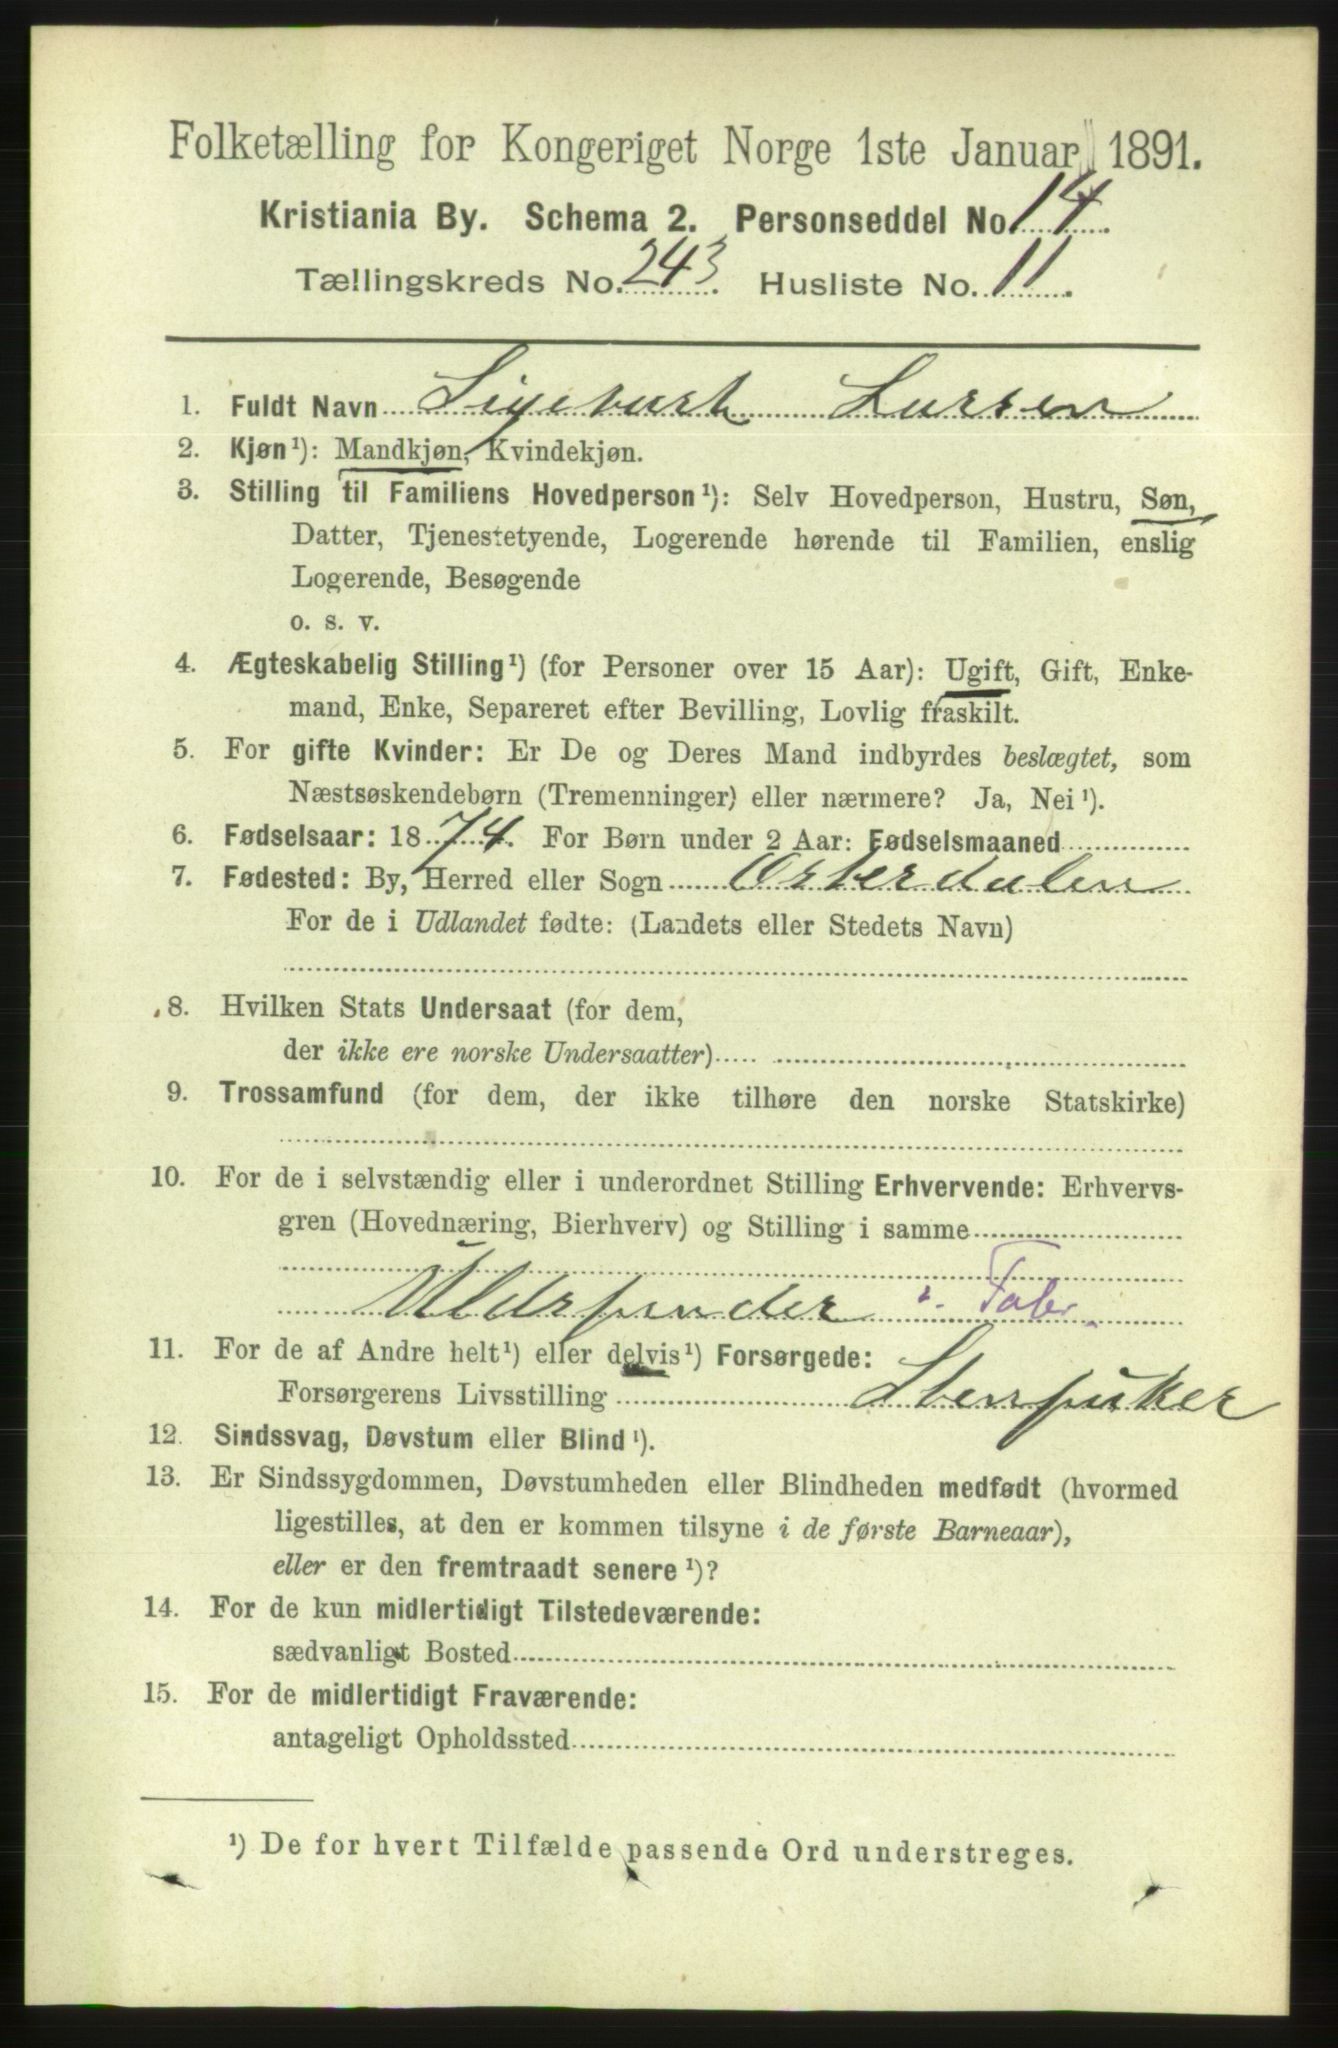 Folketælling for Kongeriget Norge 1ste Januar 1891.
Kristiania By. Schema 2. Personseddel No. 14.
Tællingskreds No. 243. Husliste No. 11.
1. Fuldt Navn Larsen
2. Kjøn ¹): Mandkjøn, Kvindekjøn.
3. Stilling til Familiens Hovedperson ¹): Selv Hovedperson, Hustru, Søn,
Datter, Tjenestetyende, Logerende hørende til Familien, enslig
Logerende, Besøgende
o. s. v.
4. Ægteskabelig Stilling ¹) (for Personer over 15 Aar): Ugift, Gift, Enke-
mand, Enke, Separeret efter Bevilling, Lovlig fraskilt.
5. For gifte Kvinder: Er De og Deres Mand indbyrdes beslægtet, som
Næstsøskendebørn (Tremenninger) eller nærmere? Ja, Nei ¹).
6. Fødselsaar: 1874. For Børn under 2 Aar: Fødselsmaaned
7. Fødested: By, Herred eller Sogn Østerdalen
For de i Udlandet fødte: (Landets eller Stedets Navn)
8. Hvilken Stats Undersaat (for dem,
der ikke ere norske Undersaatter)
9. Trossamfund (for dem, der ikke tilhøre den norske Statskirke)
10. For de i selvstændig eller i underordnet Stilling Erhvervende: Erhvervs-
gren (Hovednæring, Bierhverv) og Stilling i samme
Uldspinder i. Fabr.
11. For de af Andre helt ¹) eller delvis ¹) Forsørgede:
Forsørgerens Livsstilling
12. Sindssvag, Døvstum eller Blind ¹).
13. Er Sindssygdommen, Døvstumheden eller Blindheden medfødt (hvormed
ligestilles, at den er kommen tilsyne i de første Barneaar),
eller er den fremtraadt senere ¹)?
14. For de kun midlertidigt Tilstedeværende:
sædvanligt Bosted
15. For de midlertidigt Fraværende:
antageligt Opholdssted
¹) De for hvert Tilfælde passende Ord understreges.